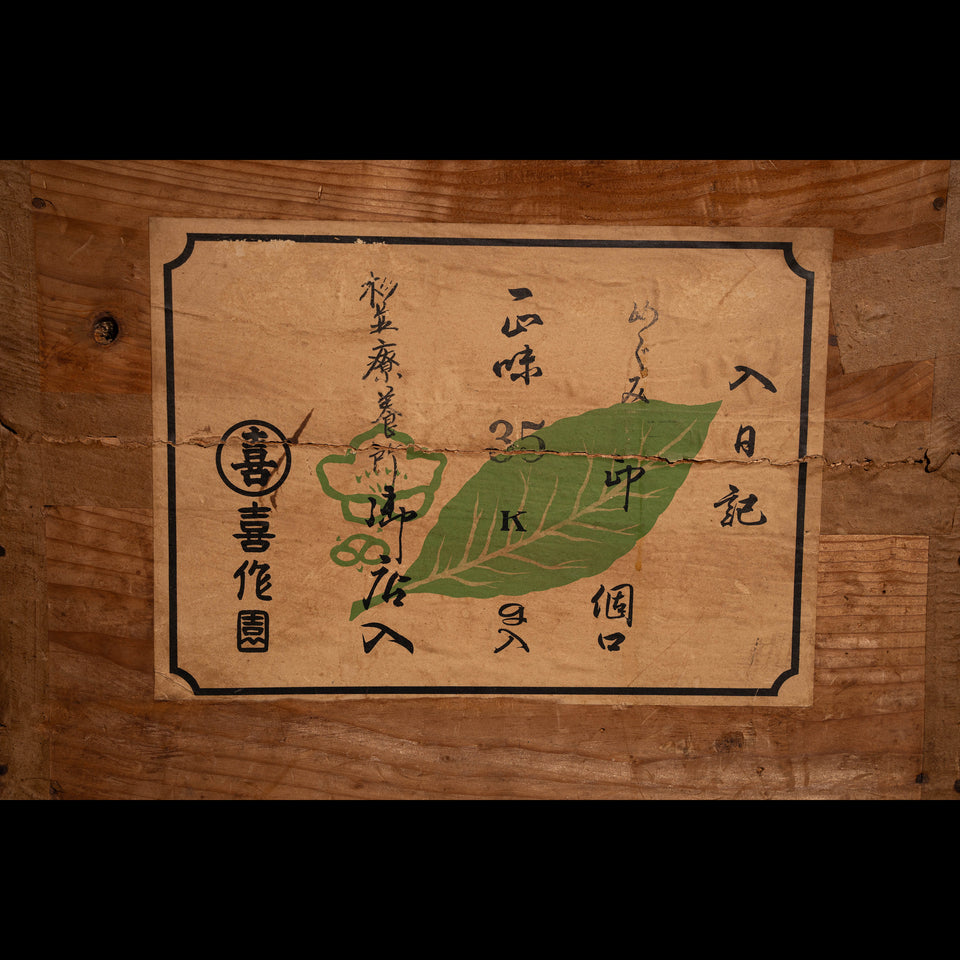 入日記
めぐみ印個口
正味35Kg入
杉並療養所御店入
喜喜作園